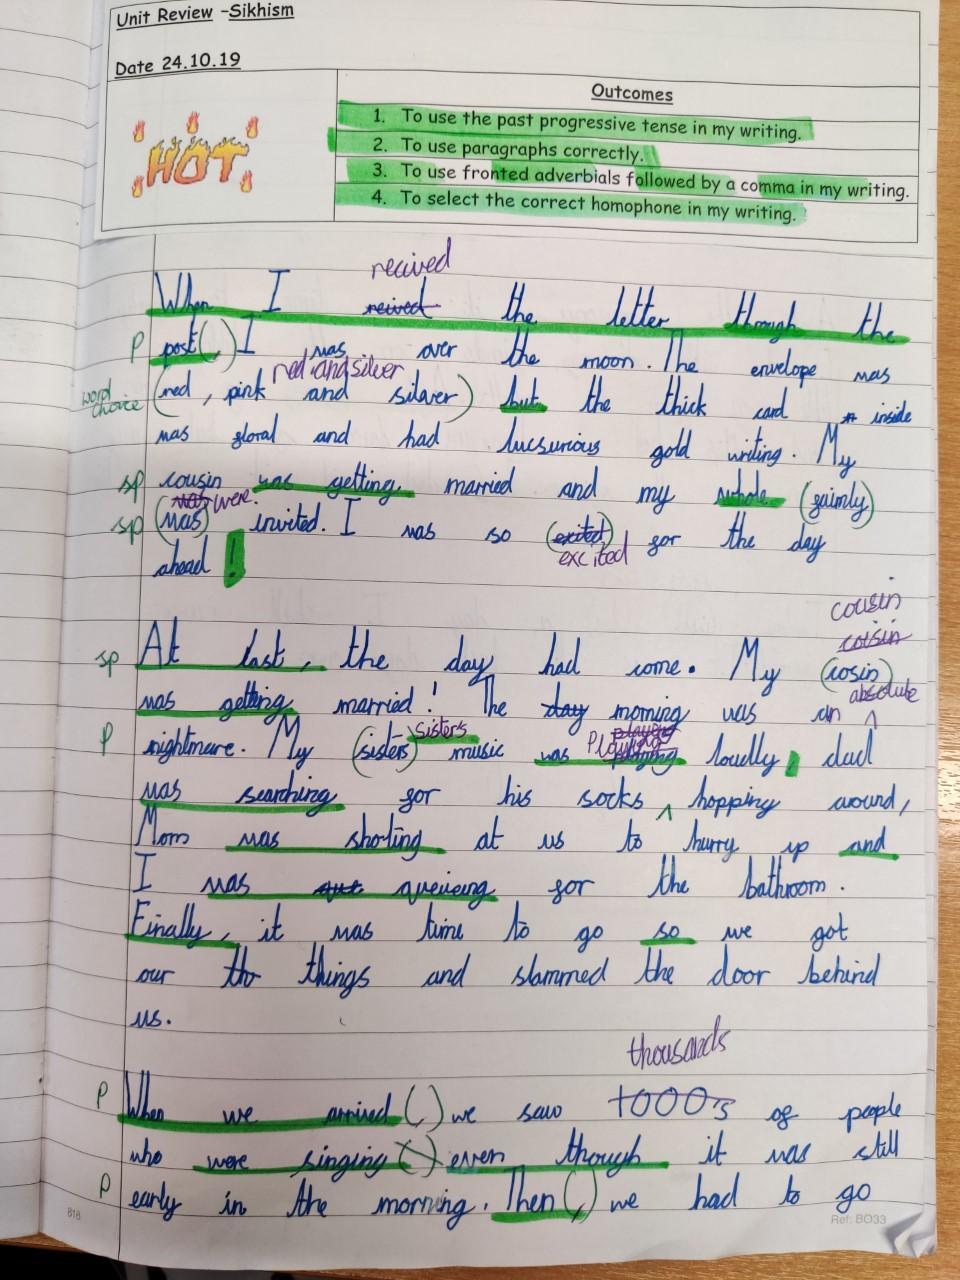 Unit Review –Sikhism
Date 24.10.19
HOT
Outcomes
1. To use the past progressive tense in my writing.
2. To use paragraphs correctly.
3. To use fronted adverbials followed by a comma in my writing.
4. To select the correct homophone in my writing.
recived
When I reived the letter through the
P post(,) I was over the moon. The envelope was
red and silver
word choice (red, pink and silaver) but the thick card inside
was floral and had lucsurious gold writing. My
sp cousin was getting married and my whole (faimly)
was were.
sp (was) invited. I was so (exited) for the day
excited
ahead!
cousin
coisin
sp At last, the day had come. My (cosin)
absolute
was getting married! The day morning was an ^
sisters playing
P nightmare. My (sisters) music was playing loudly, dad
was searching for his socks ^ hopping around,
Mom was shoting at us to hurry up and
I was queueing for the bathroom.
Finally, it was time to go so we got
our things and slammed the door behind
us.
thousands
P When we arrived(,) we saw 1000's of people
who were singing (,) even though it was still
P early in the morning. Then(,) we had to go
818
Ref: BO33